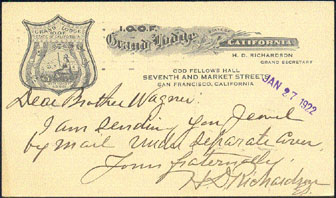 I.O.O.F.
Grand Lodge
CALIFORNIA
H. D. RICHARDSON
GRAND SECRETARY
ODD FELLOWS HALL
SEVENTH AND MARKET STREETS
SAN FRANCISCO, CALIFORNIA
JAN 27 1922
Dear Brother Wagner:
I am sending you Jewel
by mail under separate cover.
Yours fraternally
H D Richardson